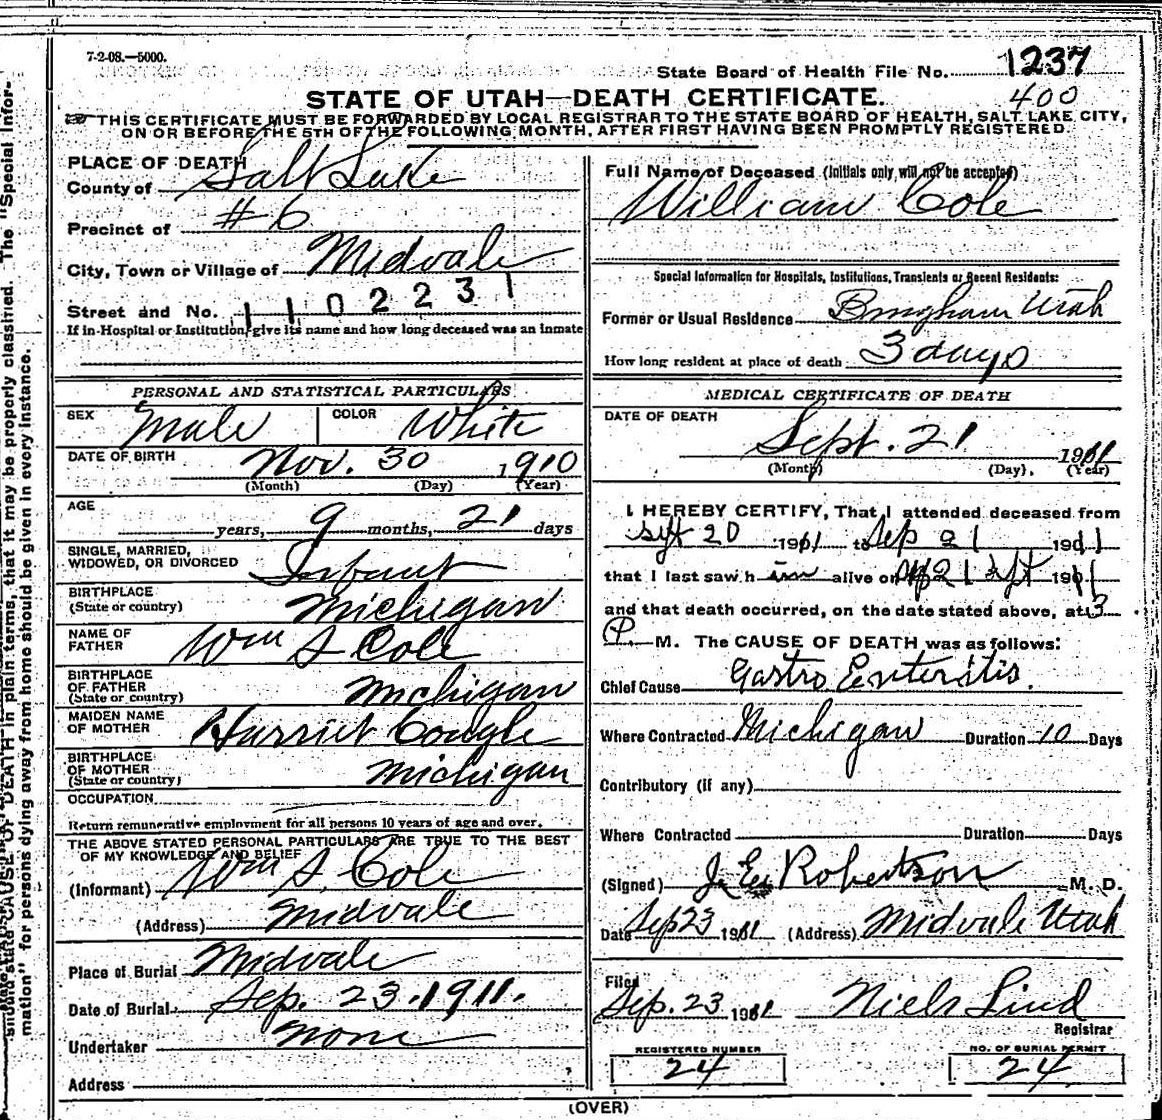 7-2-08.—5000.
State Board of Health File No. 1237
400
STATE OF UTAH—DEATH CERTIFICATE.
THIS CERTIFICATE MUST BE FORWARDED BY LOCAL REGISTRAR TO THE STATE BOARD OF HEALTH, SALT LAKE CITY,
ON OR BEFORE THE 5TH OF THE FOLLOWING MONTH, AFTER FIRST HAVING BEEN PROMPTLY REGISTERED.
PLACE OF DEATH
County of Salt Lake
Precinct of #6
City, Town or Village of Midvale
Street and No. 1 1 0 2 2 3 1
If in Hospital or Institution, give its name and how long deceased was an inmate
PERSONAL AND STATISTICAL PARTICULARS
SEX Male COLOR White
DATE OF BIRTH Nov. 30 1910
(Month) (Day) (Year)
AGE
years, 9 months, 21 days
SINGLE, MARRIED,
WIDOWED, OR DIVORCED Infant
BIRTHPLACE
(State or country) Michigan
NAME OF
FATHER Wm S Cole
BIRTHPLACE
OF FATHER
(State or country) Michigan
MAIDEN NAME
OF MOTHER Harriet Cougle
BIRTHPLACE
OF MOTHER
(State or country) Michigan
OCCUPATION
Return remunerative employment for all persons 10 years of age and over.
THE ABOVE STATED PERSONAL PARTICULARS ARE TRUE TO THE BEST
OF MY KNOWLEDGE AND BELIEF
(Informant) Wm S. Cole
(Address) Midvale
Place of Burial Midvale
Date of Burial Sep. 23. 1911.
Undertaker None
Address
Full Name of Deceased (Initials only will not be accepted)
William Cole
Special Information for Hospitals, Institutions, Transients or Recent Residents:
Former or Usual Residence Bingham Utah
How long resident at place of death 3 days
MEDICAL CERTIFICATE OF DEATH
DATE OF DEATH
Sept. 21 1911
(Month) (Day). (Year)
I HEREBY CERTIFY, That I attended deceased from
Sept 20 1911 to Sep 21 1911
that I last saw h im alive on 21 Sept 1911
and that death occurred, on the date stated above, at 3
P. M. The CAUSE OF DEATH was as follows:
Chief Cause Gastro Enteritis.
Where Contracted Michigan Duration 10 Days
Contributory (if any)
Where Contracted Duration Days
(Signed) Robertson M. D.
Date Sep 23 1911 (Address) Midvale Utah
Filed
Sep. 23 1911 Niels Lind
Registrar
REGISTERED NUMBER
24
NO. OF BURIAL PERMIT
24
(OVER)
should state CAUSE OF DEATH in plain terms, that it may be properly classified. The "Special Infor-
mation" for persons dying away from home should be given in every instance.